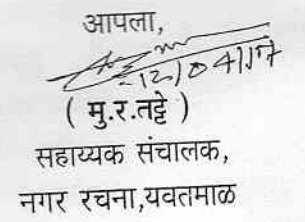 आपला,
12/04/17
( मु.र.तट्टे )
सहाय्यक संचालक,
नगर रचना,यवतमाळ